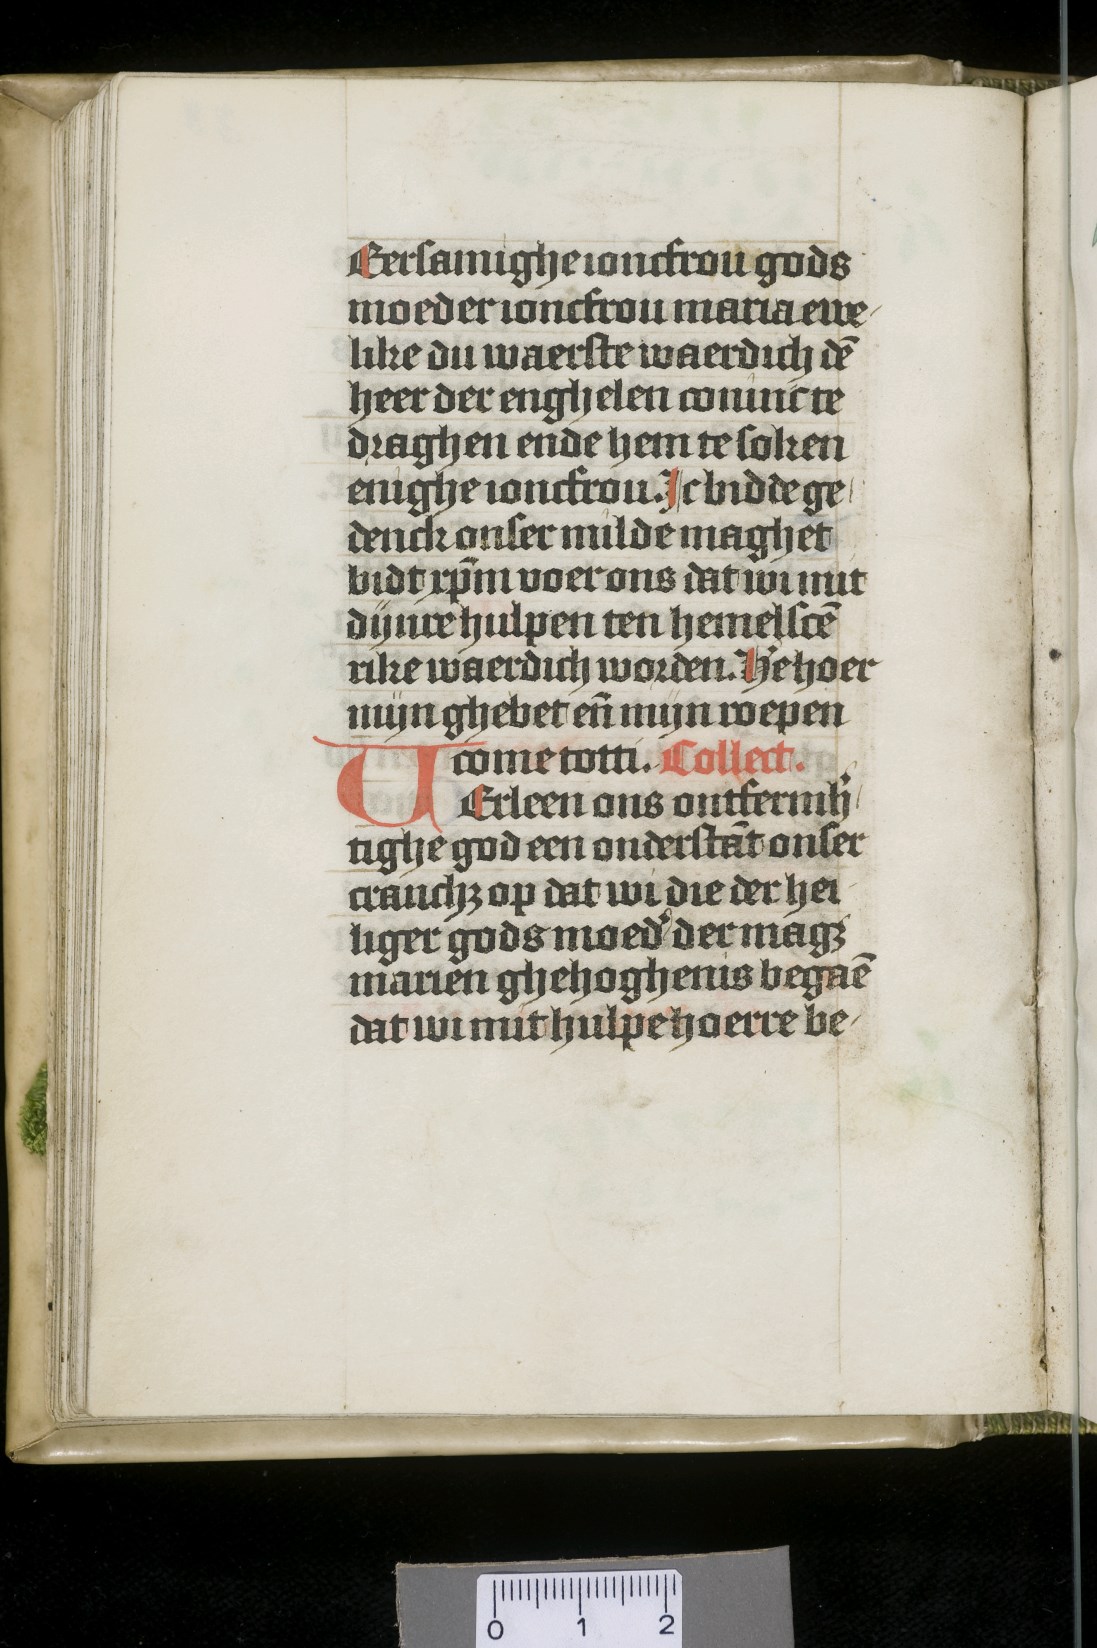 Eersamighe ioncfrou gods
moeder ioncfrou maria ewe
like du waerste waerdich dē
heer der enghelen coninc te
draghen ende hem te soken
enighe ioncfrou. Ic bidde ge
denck onser milde maghet
bidt xp̄m voer ons dat wi mit
dijnre hulpen ten hemelscē
rike waerdich worden. He hoer
mijn ghebet eñ mijn roepen
come totti. Collect.
VErleen ons ontfermh'
tighe god een onderstāt onser
cranchz op dat wi die der hei
liger gods moed' der magz
marien ghehoghenis begaē
dat wi mit hulpe hoerre be
0 1 2